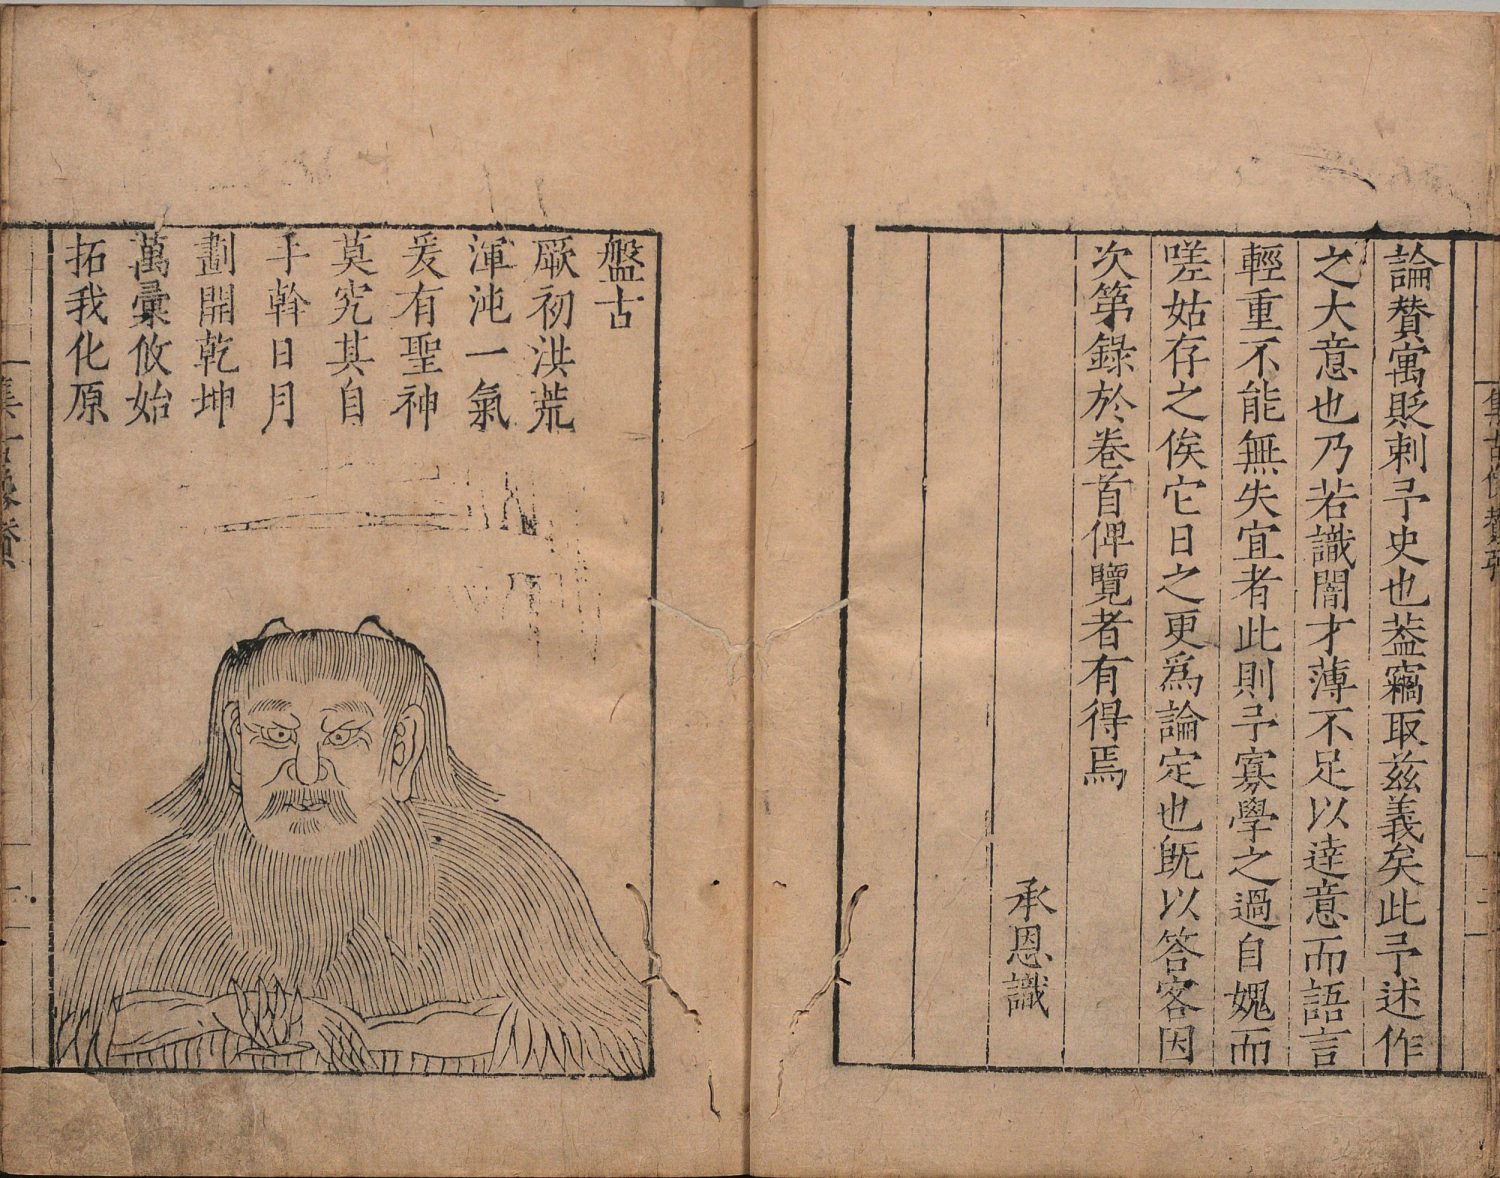 論賛寓貶刺予史也葢竊取兹義矣此予述作
之大意也乃若識闇才薄不足以逹意而語言
輕重不能無失宜者此則予寡學之過自媿而
嗟姑存之俟它日之更爲論定也旣以答客因
次第錄於卷首俾覽者有得焉
承恩識
盤古
厥初洪荒
渾沌一氣
爰有聖神
莫究其自
手斡日月
劃開乾坤
萬彙攸始
拓我化原
集古像賛